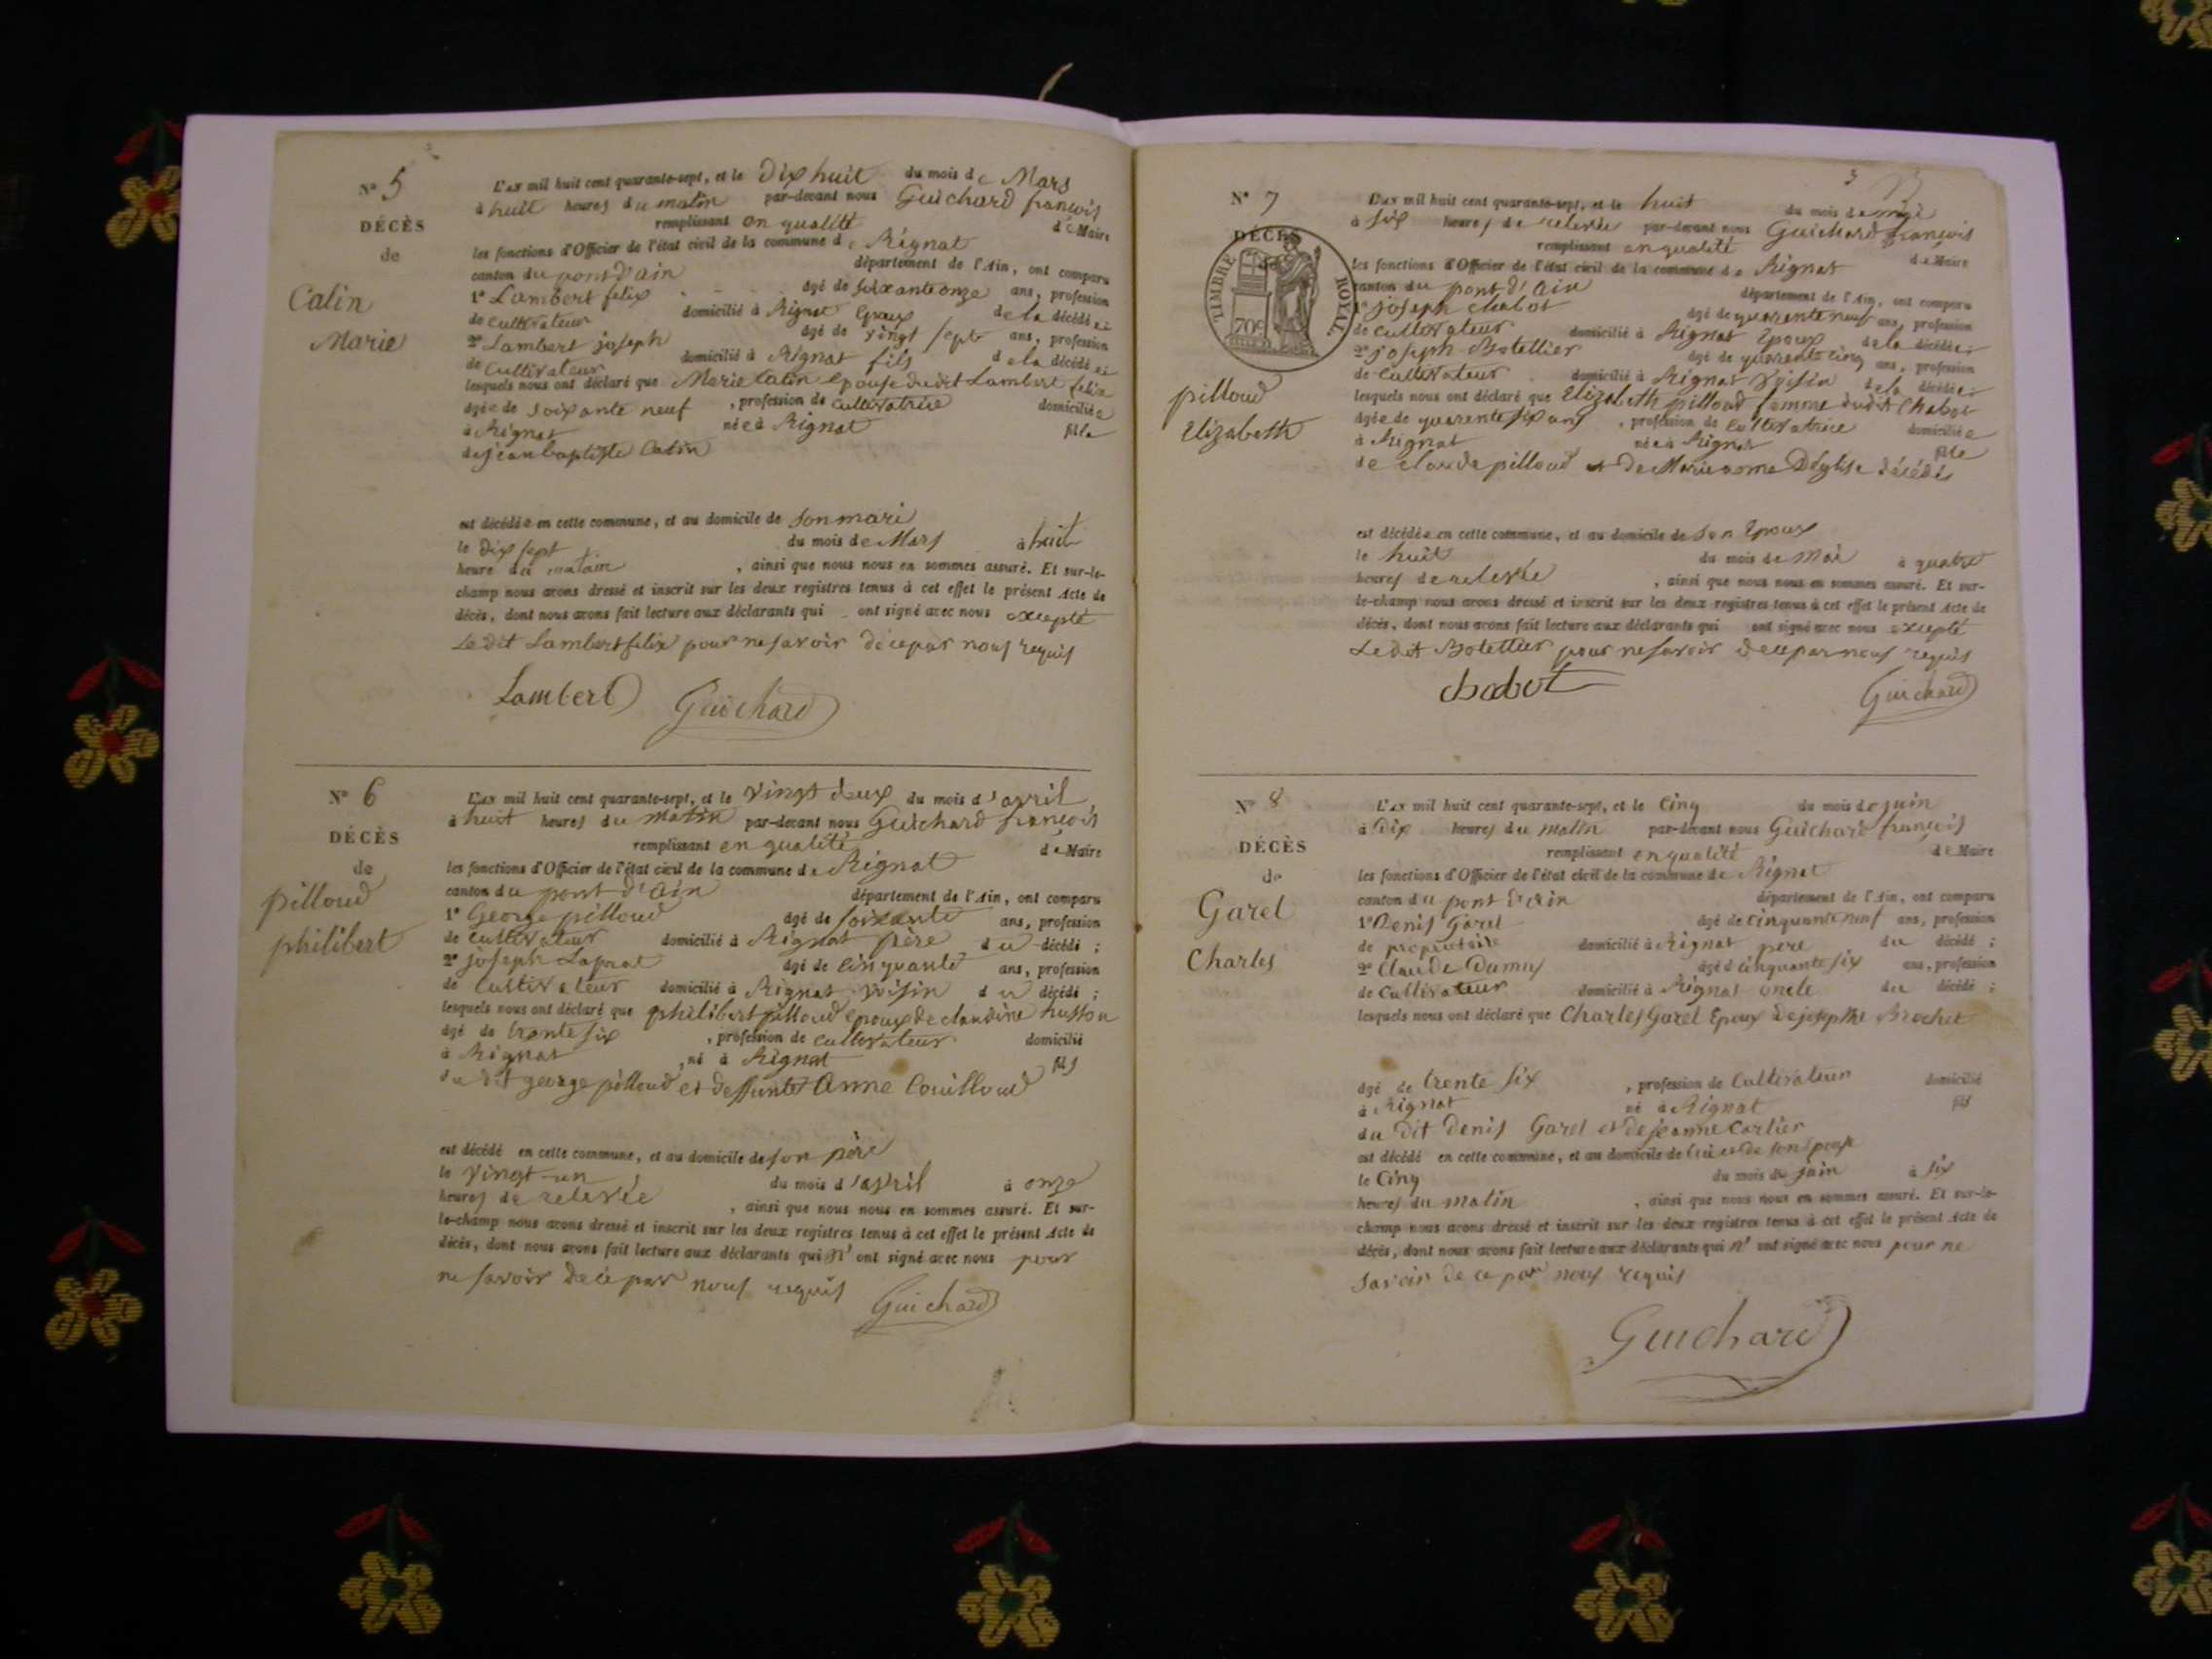 N° 5
DÉCÈS
de
Catin
Marie
L'AN mil huit cent quarante-sept, et le Dix huit du mois de Mars
à huit heures du matin par-devant nous Guichard françois
remplissant en qualité de Maire
les fonctions d'Officier de l'état civil de la commune de Rignat
canton du pont d'ain département de l'Ain, ont comparu
1° Lambert felix âgé de soixante onze ans, profession
de cultivateur domicilié à Rignat Epoux de la décédée;
2° Lambert joseph âgé de vingt sept ans, profession
de Cultivateur domicilié à Rignat fils de la décédée;
lesquels nous ont déclaré que Marie Catin Epouse dudit Lambert felix
âgée de soixante neuf, profession de cultivatrice domiciliée
à Rignat née à Rignat fille
de jean baptiste Catin
est décédée en cette commune, et au domicile de son mari
le dix sept du mois de Mars à huit
heure du matin, ainsi que nous nous en sommes assuré. Et sur-le-
champ nous avons dressé et inscrit sur les deux registres tenus à cet effet le présent Acte de
décès, dont nous avons fait lecture aux déclarants qui ont signé avec nous excepté
Le dit Lambert felix pour ne savoir de ce par nous requis
Lambert Guichard
N° 6
DÉCÈS
de
pilloud
philibert
L'AN mil huit cent quarante-sept, et le vingt deux du mois d'avril
à huit heures du matin par-devant nous Guichard françois
remplissant en qualité de Maire
les fonctions d'Officier de l'état civil de la commune de Rignat
canton du pont d'ain département de l'Ain, ont comparu
1° George pilloud âgé de soixante ans, profession
de cultivateur domicilié à Rignat père du décédé;
2° joseph Laprat âgé de cinquante ans, profession
de cultivateur domicilié à Rignat voisin du décédé;
lesquels nous ont déclaré que philibert pilloud epoux de claudine husson
âgé de trente six, profession de cultivateur domicilié
à Rignat, né à Rignat fils
du dit george pilloud et deffunte Anne Couilloud
est décédé en cette commune, et au domicile de son père
le vingt-un du mois d'avril à onze
heures de relevée, ainsi que nous nous en sommes assuré. Et sur-
le-champ nous avons dressé et inscrit sur les deux registres tenus à cet effet le présent Acte de
décès, dont nous avons fait lecture aux déclarants qui n'ont signé avec nous pour
ne savoir de ce par nous requis
Guichard
3
N° 7
DÉCÈS
TIMBRE ROYAL
70c
pilloud
Elizabeth
L'AN mil huit cent quarante-sept, et le huit du mois de mai
à six heures de relevée par-devant nous Guichard françois
remplissant en qualité de Maire
les fonctions d'Officier de l'état civil de la commune de Rignat
canton du pont d'ain département de l'Ain, ont comparu
1° joseph chabot âgé de quarente neuf ans, profession
de cultivateur domicilié à Rignat Epoux de la décédée;
2° joseph Botellier âgé de quarente cinq ans, profession
de cultivateur domicilié à Rignat voisin de la décédée;
lesquels nous ont déclaré que Elizabeth pilloud femme dudit Chabot
âgée de quarente six ans, profession de cultivatrice domiciliée
à Rignat née à Rignat fille
de claude pilloud et de Marie anne Déglise décédés
est décédée en cette commune, et au domicile de son Epoux
le huit du mois de Mai à quatre
heures de relevée, ainsi que nous nous en sommes assuré. Et sur-
le-champ nous avons dressé et inscrit sur les deux registres tenus à cet effet le présent Acte de
décès, dont nous avons fait lecture aux déclarants qui ont signé avec nous excepté
Le dit Botellier pour ne savoir de ce par nous requis
chabot Guichard
N° 8
DÉCÈS
de
Garel
Charles
L'AN mil huit cent quarante-sept, et le Cinq du mois de juin
à Dix heures du matin par-devant nous Guichard françois
remplissant en qualité de Maire
les fonctions d'Officier de l'état civil de la commune de Rignat
canton du pont d'ain département de l'Ain, ont comparu
1° Denis Garel âgé de cinquante neuf ans, profession
de propriétaire domicilié à Rignat père du décédé;
2° Claude Dumas âgé d cinquante six ans, profession
de Cultivateur domicilié à Rignat oncle du décédé;
lesquels nous ont déclaré que Charles Garel Epoux de josephte Brochet
âgé de trente six, profession de Cultivateur domicilié
à Rignat né à Rignat fils
du dit Denis Garel et de jeanne Carlier
est décédé en cette commune, et au domicile de de son Epouse
le Cinq du mois de juin à six
heures du matin, ainsi que nous nous en sommes assuré. Et sur-le-
champ nous avons dressé et inscrit sur les deux registres tenus à cet effet le présent Acte de
décès, dont nous avons fait lecture aux déclarants qui n'ont signé avec nous pour ne
savoir de ce par nous requis
Guichard